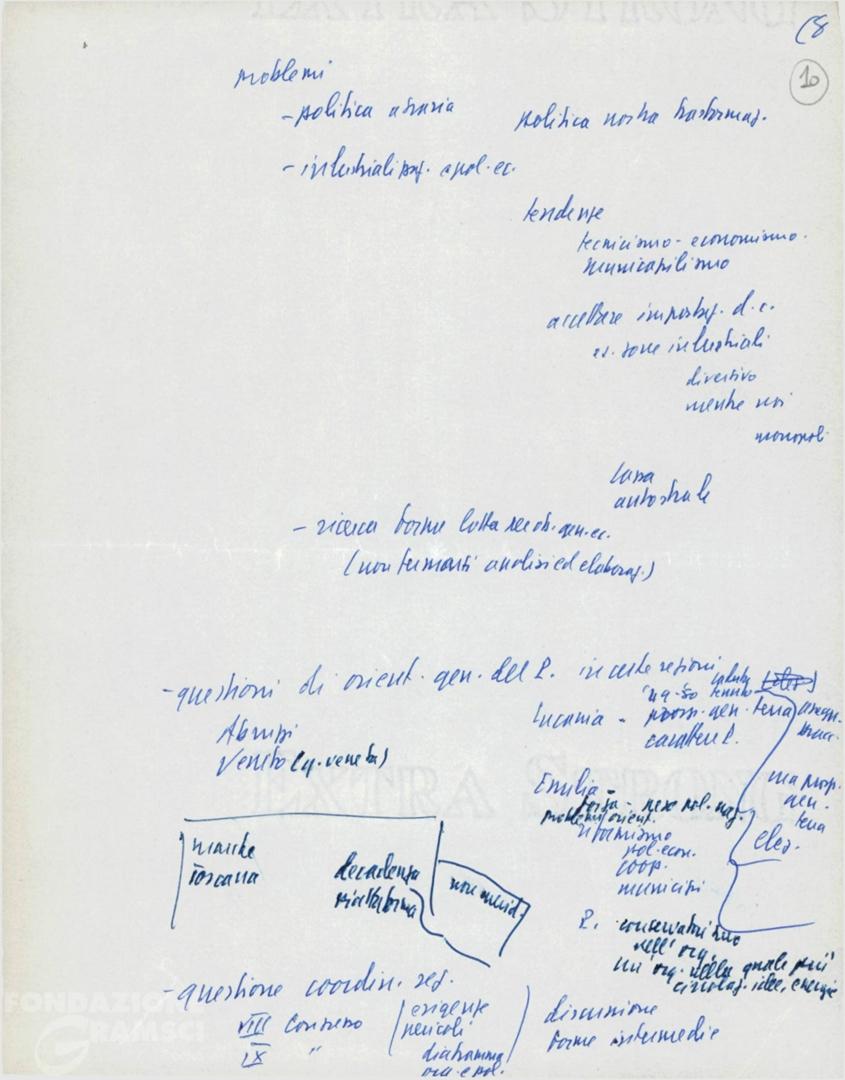 (8
10
problemi
- politica agraria
politica nostra trasformaz.
- industrializz. e pol. ec.
tendenze
tecnicismo - economismo.
municipalismo
accettare impostaz. d. c.
es. zone industriali
divertivo
mentre noi
monopoli
cassa
autostrade
- ricerca forme lotta
(non fermarsi analisi ed elaboraz.)
- questioni di orient. gen. del P. in certe regioni
Abruzzi
Veneto (q. veneta)
Lucania -
gen. terra
carattere P.
Emilia -
forza - nesso pol. naz.
problemi orient.
riformismo
pol. econ.
coop.
municipi
ma
gen.
terra
elez.
marche
Toscana
decadenza
piattaforma
non merid.
P. conservatorismo
nell' org.
un' org. nella quale più
circolaz. idee, energie
- questione coordin. reg.
VIII Congresso
IX "
esigenze
pericoli
diaframma
org. e pol.
discussione
forme intermedie
FONDAZIONE
GRAMSCI
EXTRA STRONG